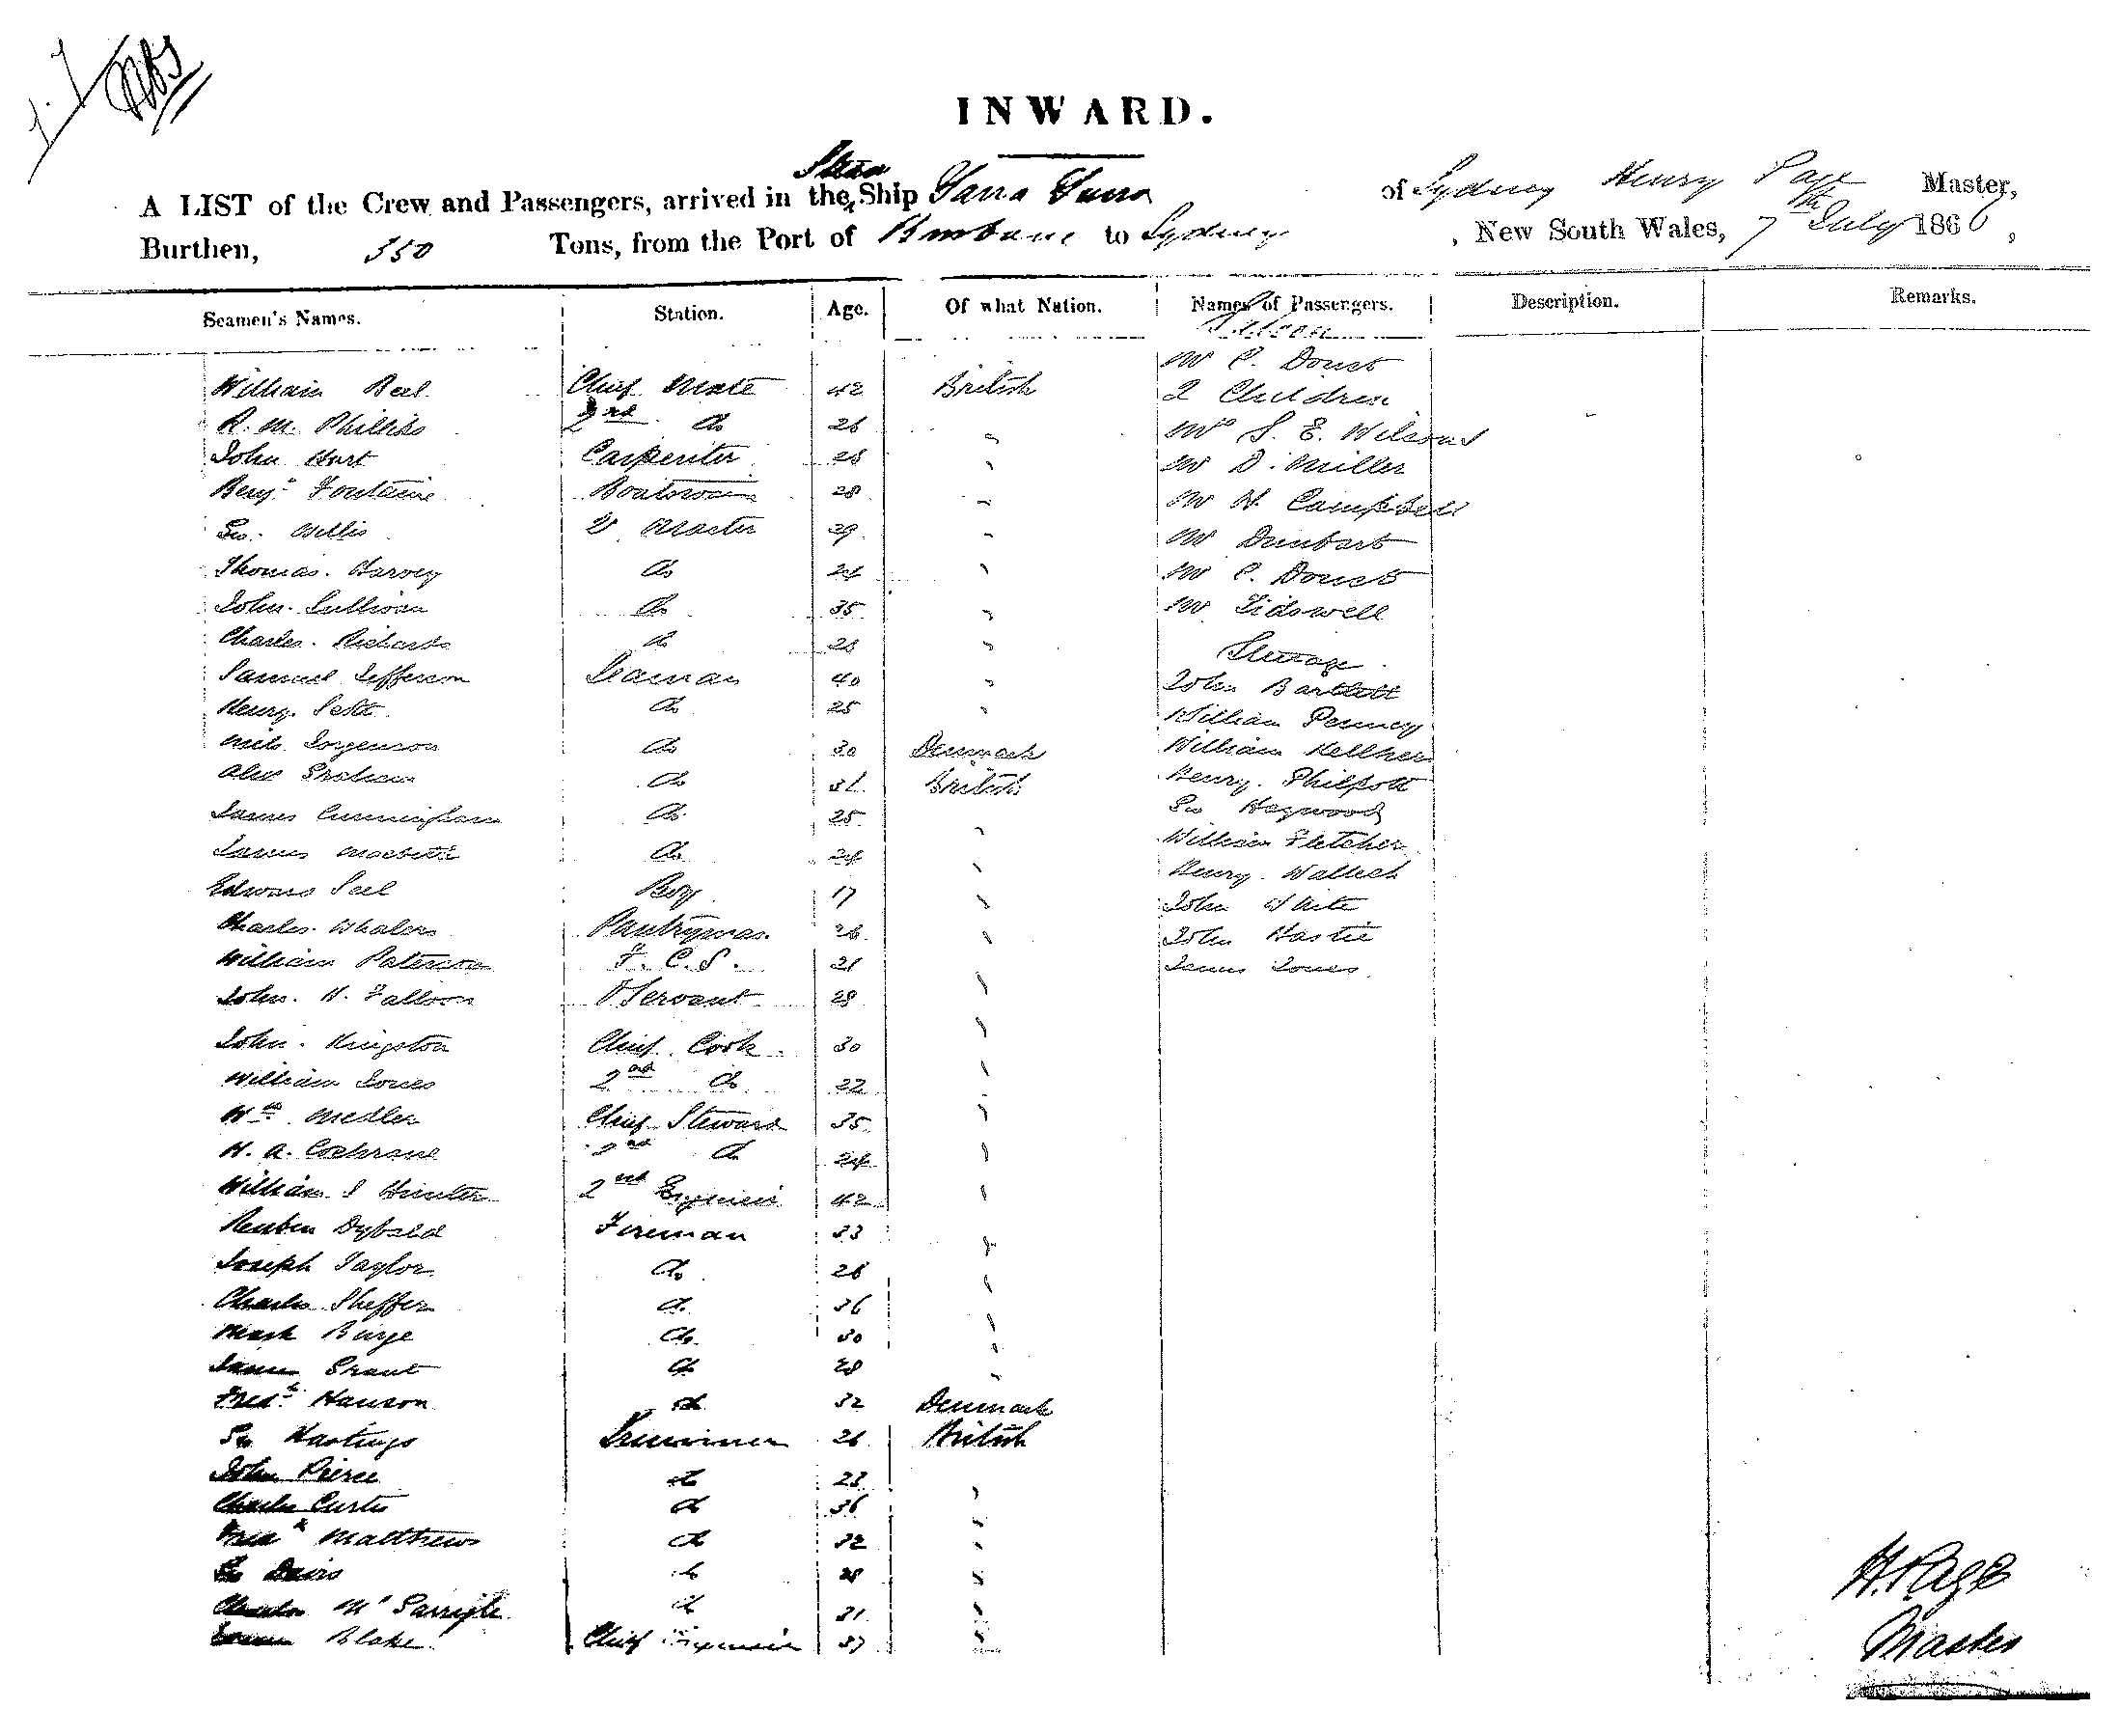 INWARD.
A LIST of the Crew and Passengers, arrived in the Steam Ship Yarra Yarra of Sydney Henry Page Master,
Burthen, 550 Tons, from the Port of Brisbane to Sydney, New South Wales, 7th July 1860,
Seamen's Names. Station. Age. Of what Nation. Names of Passengers. Description. Remarks.
Saloon
Mr C. Doust
William Beel Chief Mate 42 British 2 Children
R. M. Phillips 2nd Do 26 " Mrs S. E. Wilson
John Hart Carpenter 28 " Mr D. Miller
Benjn Fontaine Boatswain 28 " Mr W. Campbell
Geo. Willis Qr Master 29 " Mr Dunbart
Thomas Harvey Do 24 " Mr C. Doust
John Sullivan Do 35 " Mr Tidswell
Charles Richards Do 28 " Steerage
Samuel Jefferson Seaman 40 " John Bartlett
Henry Do 25 " William Penney
Nils Jorgenson Do 30 Denmark William Kellher
Alex Graham Do British Henry Philpott
James Cunningham Do 25 " Geo Haywood
James Macbeth Do 24 " William Fletcher
Edward Peel Boy 17 " Henry Wallach
Charles Whalers Pantryman 26 " John White
William Paterson F. C. S. 21 " John Hastie
John H. Falloon Servant 28 " James Jones
John Kingston Chief Cook 30 "
William Jones 2nd Do 22 "
Wm Medler Chief Steward 35 "
H. A. Cochrane 2nd Do 24 "
William J Hunter 2nd Engineer 42 "
Reuben Dybald Fireman 33 "
Joseph Taylor Do 26 "
Charles Sheffer Do 36 "
Mark Burge Do 30 "
James Grant Do 28 "
Fredk Hanson Do 32 Denmark
Geo Hastings Trimmer 26 British
John Pierce Do 23 "
Charles Curtis Do 36 "
Fredk Matthews Do 32 "
Geo Davis Do 28 "
Charles Mc Do 21 "
Blake Chief Engineer 37 "
H. Page
Master